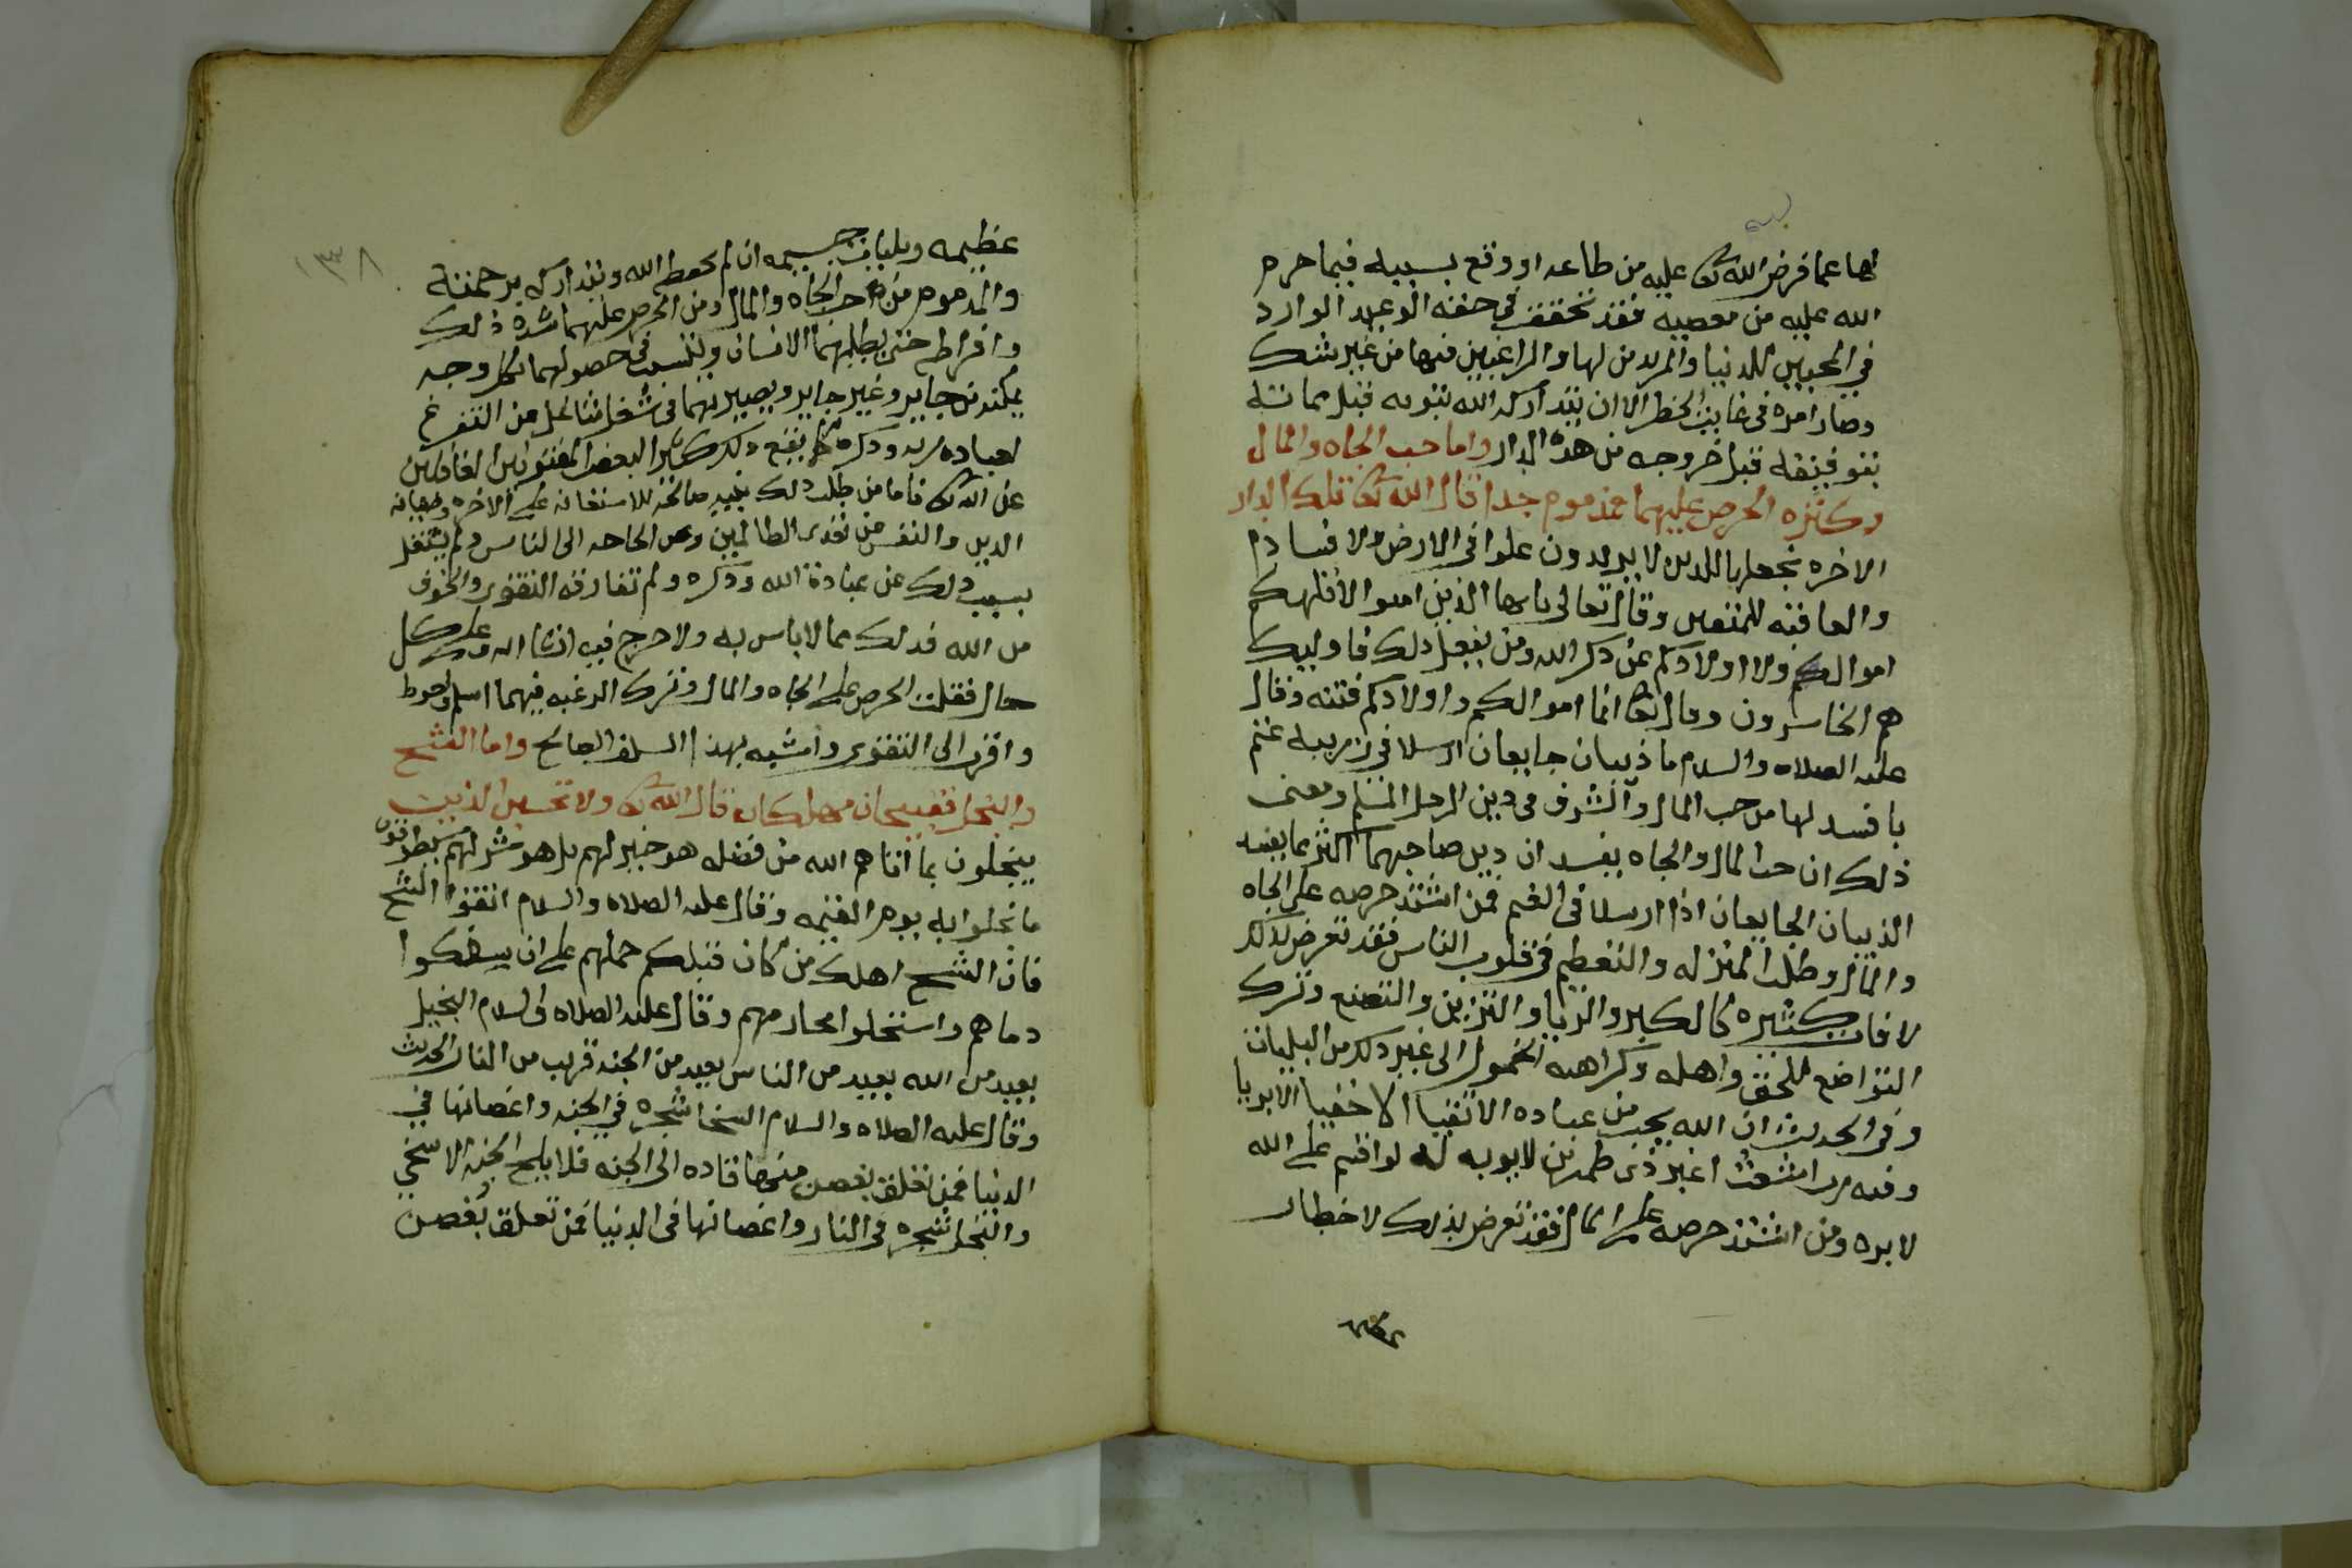 لها عما فرض الله تعالى عليه من طاعه او وقع بسببه فيما حرم
الله عليه من معصيه فقد تحققت في حقه الوعيد الوارد
في المحبين للدنيا والمريدين لها والراغبين فيها من غير شك
وصار امره في غايت الخطر الا ان يتداركه الله بتوبه قبل مماته
بتوفيقه قبل خروجه من هذه الدار واما حب الجاه والمال
وكثره الحرص عليهما فمذموم جدا قال الله تعالى تلك الدار
الاخره نجعلها للذين لا يريدون علوا في الارض ولا فسادا
والعاقبه للمتقين وقال تعالى يايها الذين امنوا لا تلهكم
اموالكم ولا اولادكم عن ذكر الله ومن يفعل ذلك فاوليك
هم الخاسرون وقال تعالى انما اموالكم واولادكم فتنه وقال
عليه الصلاه والسلام ما ذيبان جايعان ارسلا في زريبه غنم
بافسد لها من حب المال والشرف في دين الرجل المسلم ومعنى
ذلك ان حب المال والجاه يفسدان دين صاحبهما اكثر مما يفسد
الذيبان الجايعان اذا ارسلا في الغنم فمن اشتد حرصه على الجاه
والمال وطلب المنزله والتعظيم في قلوب الناس فقد تعرض بذلك
لافات كثيره كالكبر والريا والتزين والتصنع وترك
التواضع للحق واهله وكراهه الخمول الى غير ذلك من البليات
وفي الحديث ان الله يحب من عباده الاتقيا الاخفيا الابريا
وفيه رب اشعث اغبر ذي طمرين لا يوبه له لو اقسم على الله
لابره ومن اشتد حرصه على المال فقد تعرض بذلك لاخطار
١٣٨
عظيمه وبليات جسيمه ان لم يحفظه الله ويتداركه برحمته
والمذموم من حب الجاه والمال ومن الحرص عليهما شده ذلك
وافراطه حتى يطلبهما الانسان ويتسبب في حصولهما بكل وجه
يمكنه من جايز وغير جايز ويصير بهما في شغل شاغل من التفرغ
لعباده ربه وذكره كما يقع ذلك كثيرا لبعض المفتونين الغافلين
عن الله تعالى فاما من طلب ذلك بنيه صالحه للاستعانه على الاخره وصيانه
الدين والنفس من تعدي الظالمين وعن الحاجه الى الناس ولم يشتغل
بسبب ذلك عن عبادة الله وذكره ولم تفارقه التقوى والخوف
من الله فذلك مما لا باس به ولا حرج فيه ان شا الله وعلى كل
حال فقلت الحرص على الجاه والمال وترك الرغبه فيهما اسلم واحوط
واقرب الى التقوى واشبه بهدا السلف الصالح واما الشح
والبخل فقبيحان مهلكان قال الله تعالى ولا تحسبن الذين
يبخلون بما اتاهم الله من فضله هو خير لهم بل هو شر لهم سيطوقون
ما بخلوا به يوم القيمه وقال عليه الصلاه والسلام اتقوا الشح
فان الشح اهلك من كان قبلكم حملهم على ان يسفكوا
دماهم واستحلوا محارمهم وقال عليه الصلاه والسلام البخيل
بعيد من الله بعيد من الناس بعيد من الجنه قريب من النار الحديث
وقال عليه الصلاه والسلام السخا شجره في الجنه واغصانها في
الدنيا فمن تعلق بغصن منها قاده الى الجنه فلا يلج الجنه الا سخي
والبخل شجره في النار واغصانها في الدنيا فمن تعلق بغصن